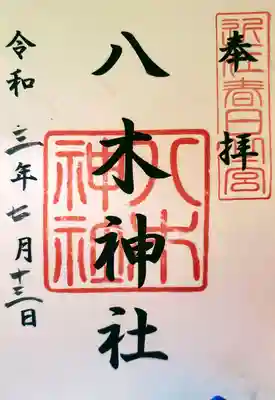 奉拝
近江春日宮
八木神社
八木神社
令和三年七月十三日